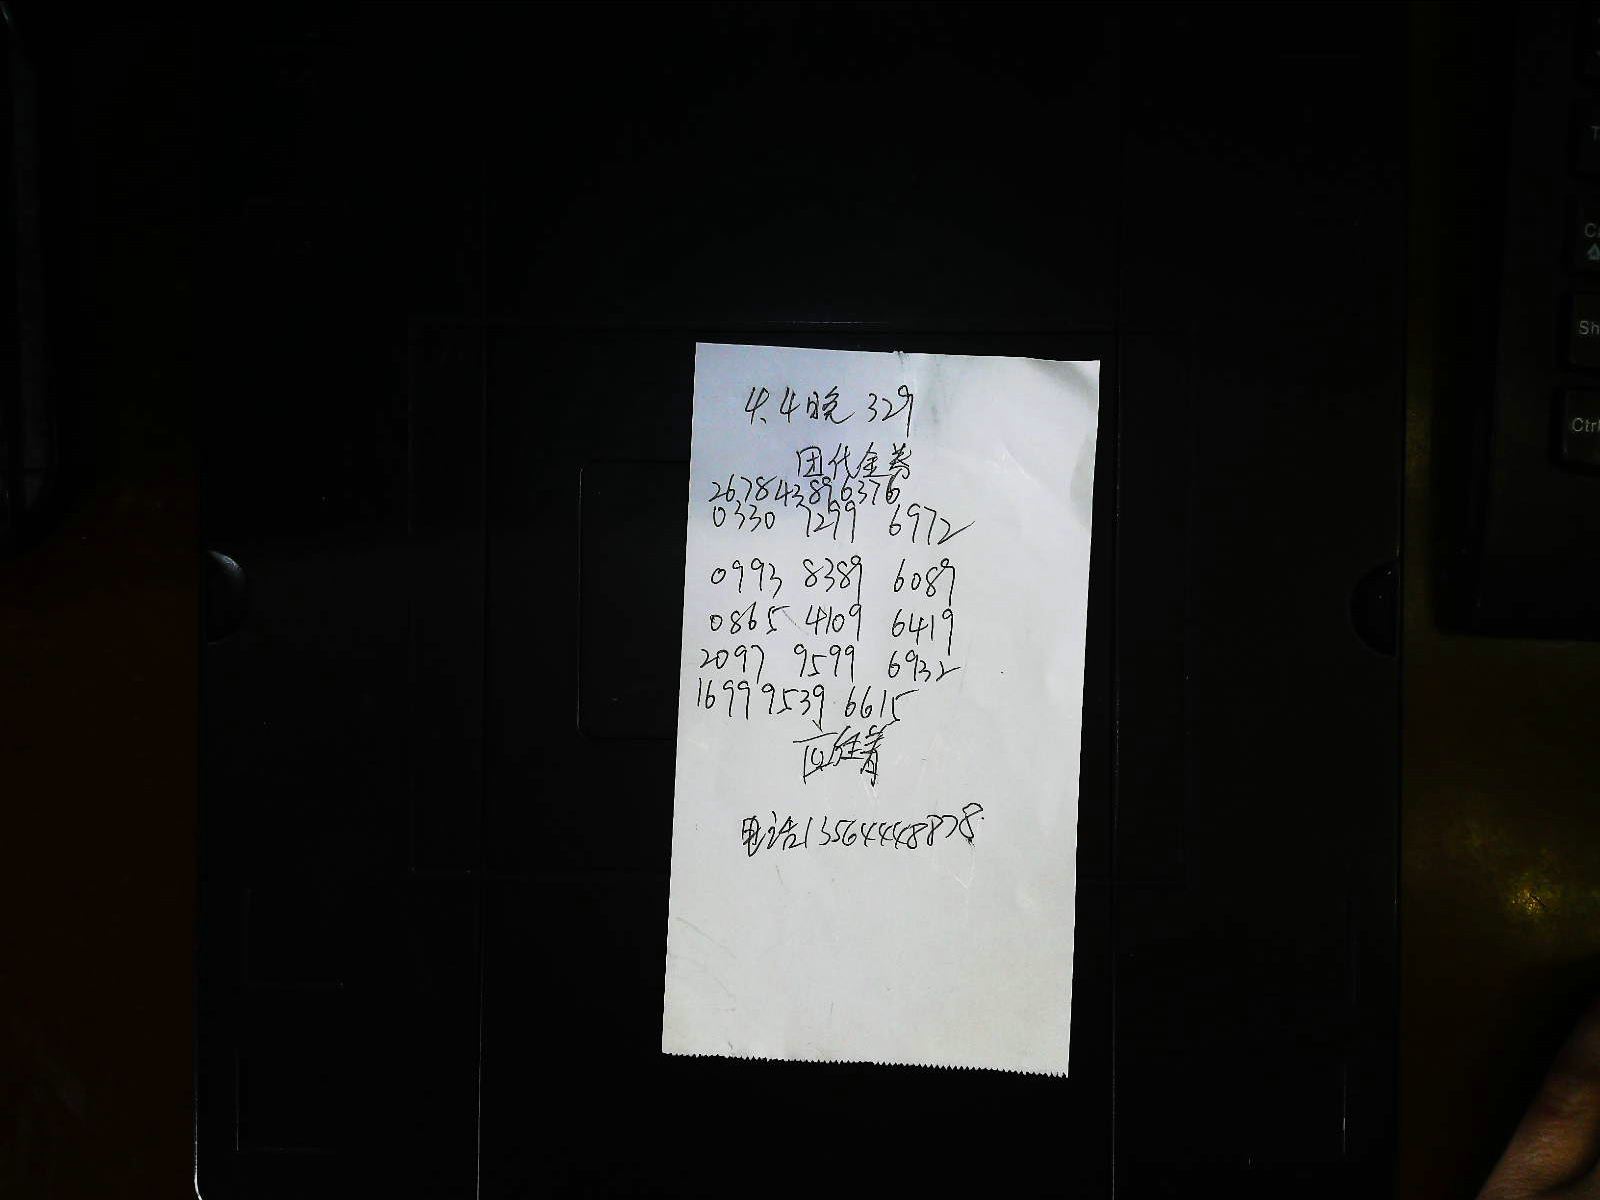 4.4晚 329
团代金券
2678 4389 6376
0330 7299 6972
0993 8389 6089
0865 4109 6419
2097 9599 6932
1699 9539 6615
电话13564448878
T
Ca
Sh
Ctrl